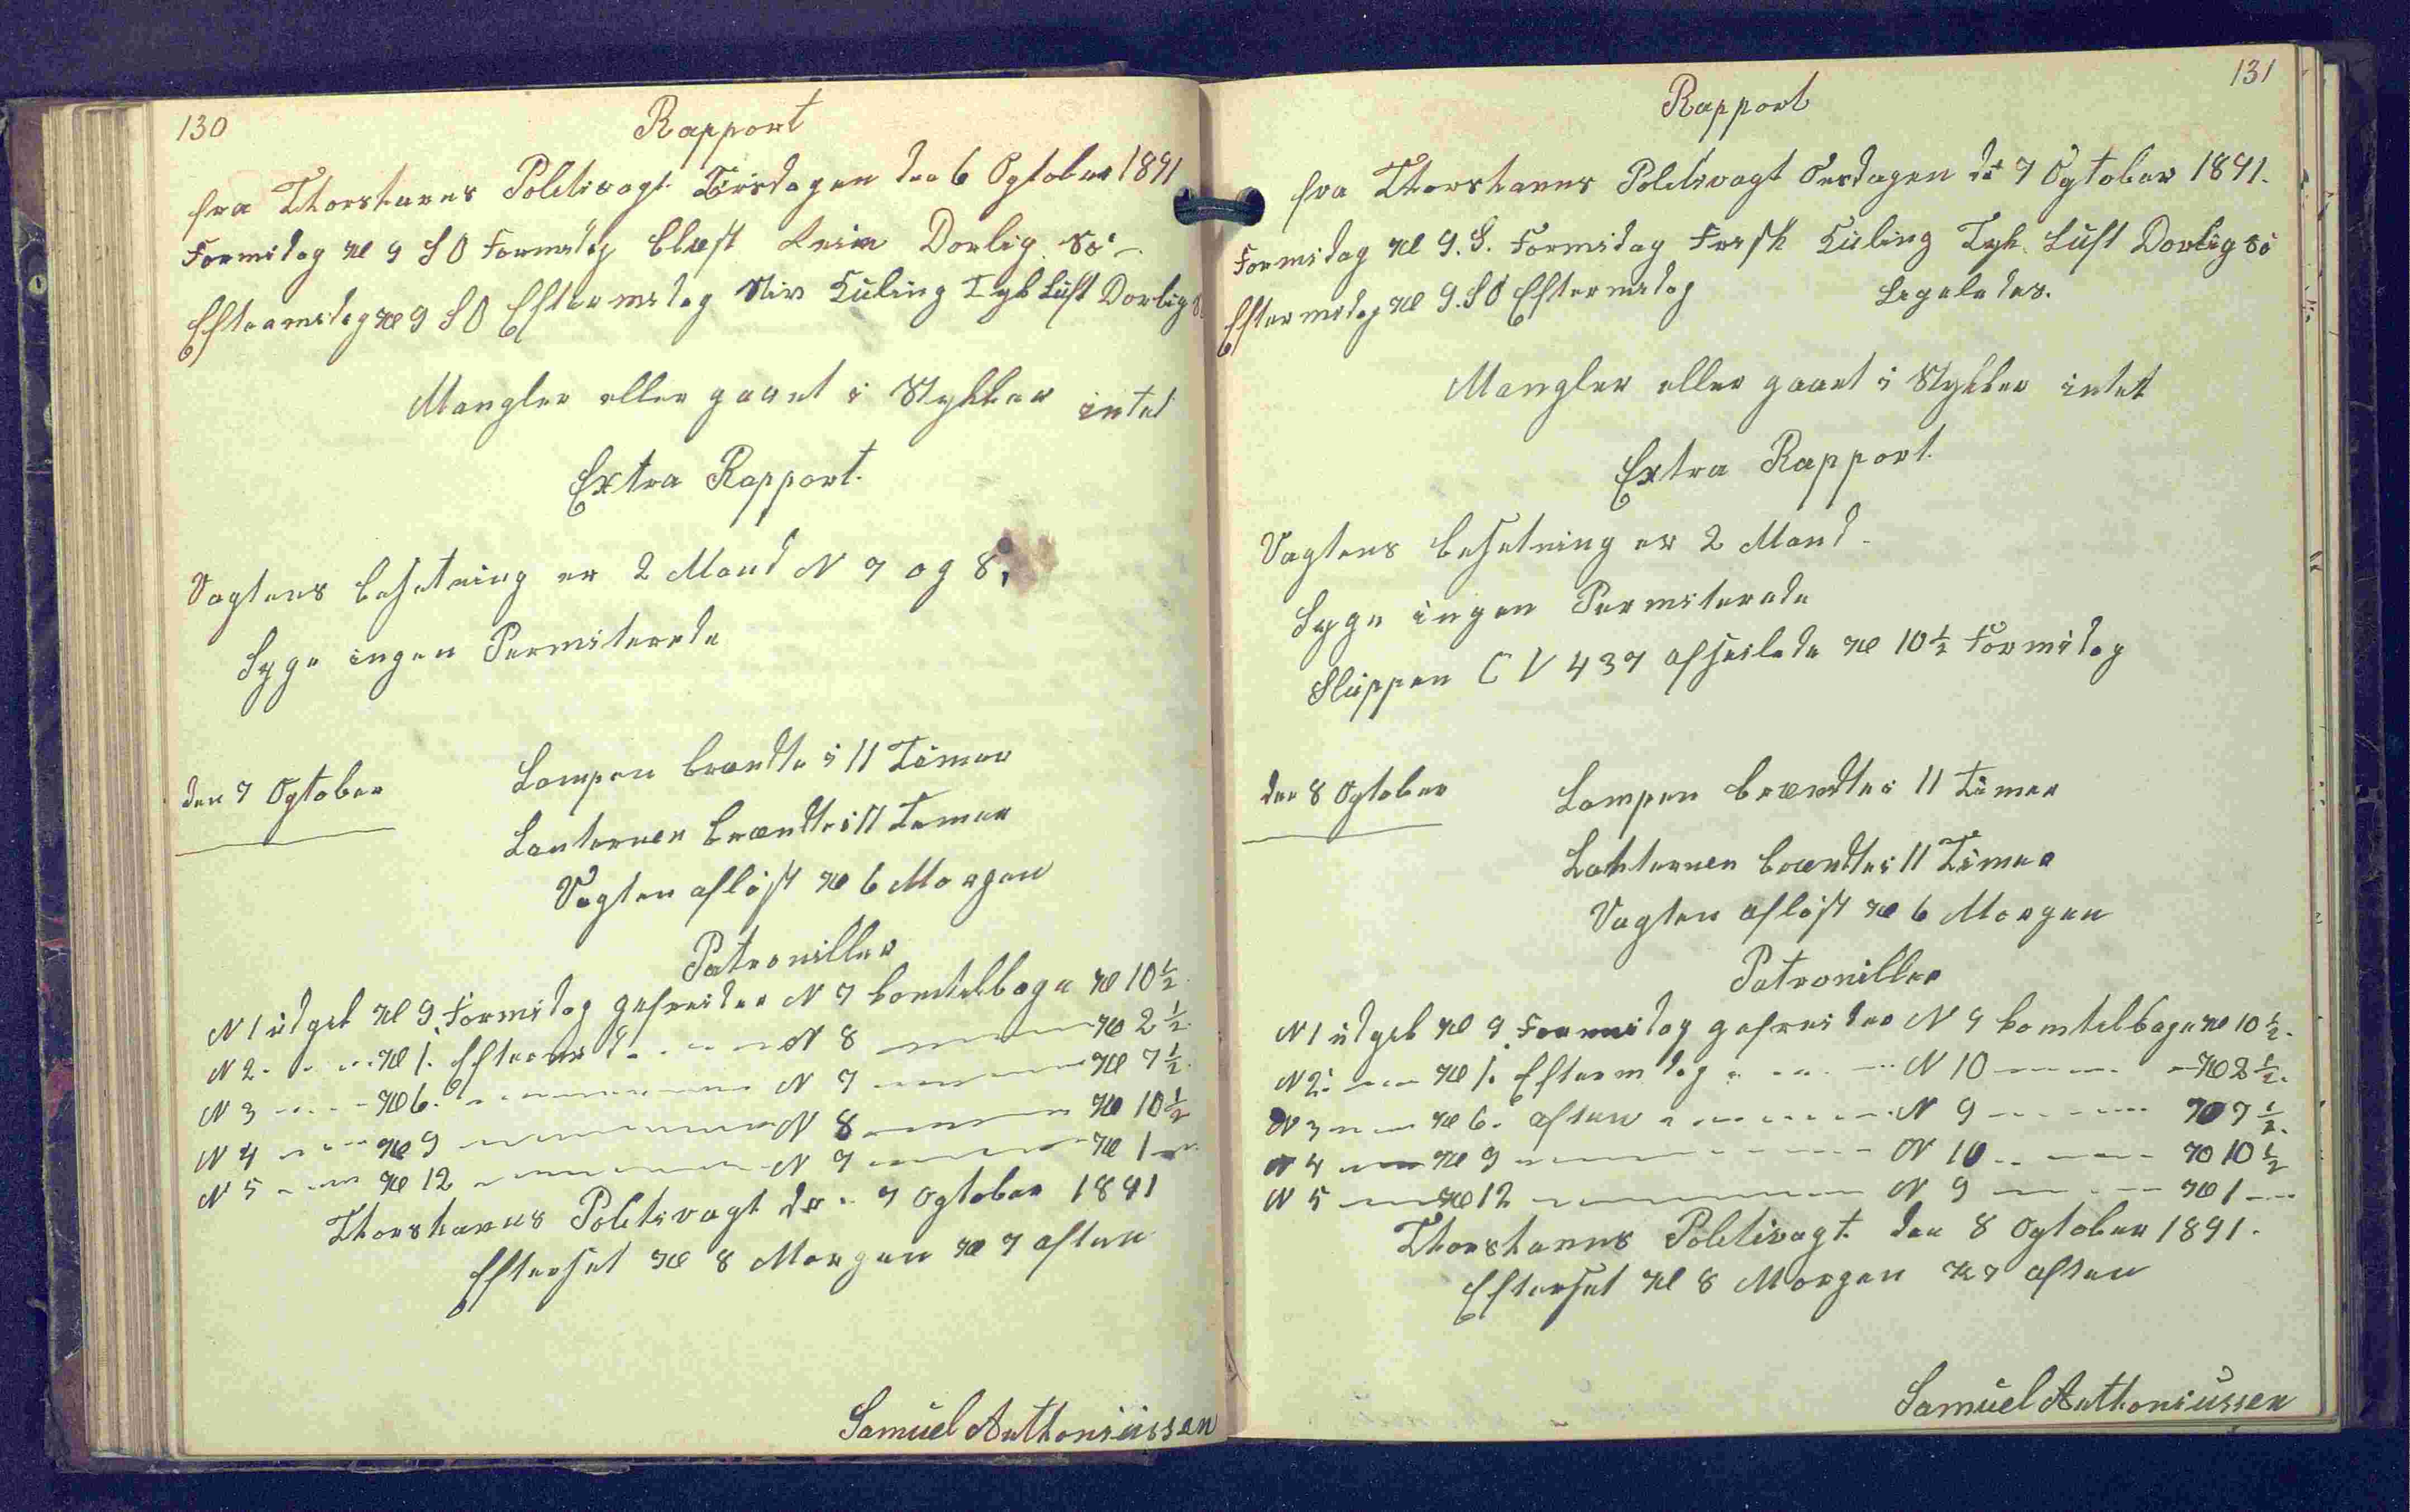 130
Rapport
fra Thorshavns Politivagt Tirsdagen den 6 Ogtober 1891
Formidag Kl 9 SO Formidag blæst Dorlig Sö
Eftermidag Kl 9 SO Eftermidag Stiv Kuling Tyk Luft Dorlig
Mangler eller gaaet i Stykker intet
Extra Rapport.
Vagtens besetning er 2 Mand N 7 og 8,
Syge ingen Permiterede
den 7 Ogtober
Lampen brændte i 11 Timer
Lanternen brændte i 11 Timer
Vagten aflöst Kl 6 Morgen
Patroniller
N 1 udgik Kl 9 Formidag gefreider N 7 kom tilbage Kl 10½
N 2 Kl 1. Efterm N 8 Kl 2½
N 3 Kl 6. N 7 Kl 7½
N 4 Kl 9 N 8 Kl 10½
N 5 Kl 12 N 7 Kl 1
Thorshavns Politivagt den 7 Ogtober 1891
Efterset Kl 8 Morgen Kl 7 aften
Samuel Anthoniussen
131
Rapport
fra Thorshavns Politivagt Onsdagen d. 7 Ogtober 1891.
Formidag Kl 9. S. Formidag Frisk Kuling Tyk Luft Dorlig Sö
Eftermidag Kl 9. SO Eftermidag Ligeledes.
Mangler eller gaaet i Stykker intet
Extra Rapport.
Vagtens besetning er 2 Mand.
Syge ingen Permiterede
Sluppen C V 437 afseilede Kl 10½ Formidag
den 8 Ogtober
Lampen brændte i 11 Timer
Lanternen brændte i 11 Timer
Vagten aflöst Kl 6 Morgen
Patroniller
N 1 udgik Kl 9 Formidag gefreider N 9 kom tilbage Kl 10½.
N 2. Kl 1. Eftermdag N 10 Kl 2½.
N 3 Kl 6. aften N 9 Kl 7½.
N 4 Kl 9 N 10 Kl 10½
N 5 Kl 12 N 9 Kl 1
Thorshavns Politivagt. den 8 Ogtober 1891.
Efterset Kl 8 Morgen Kl 7 aften
Samuel Anthoniussen